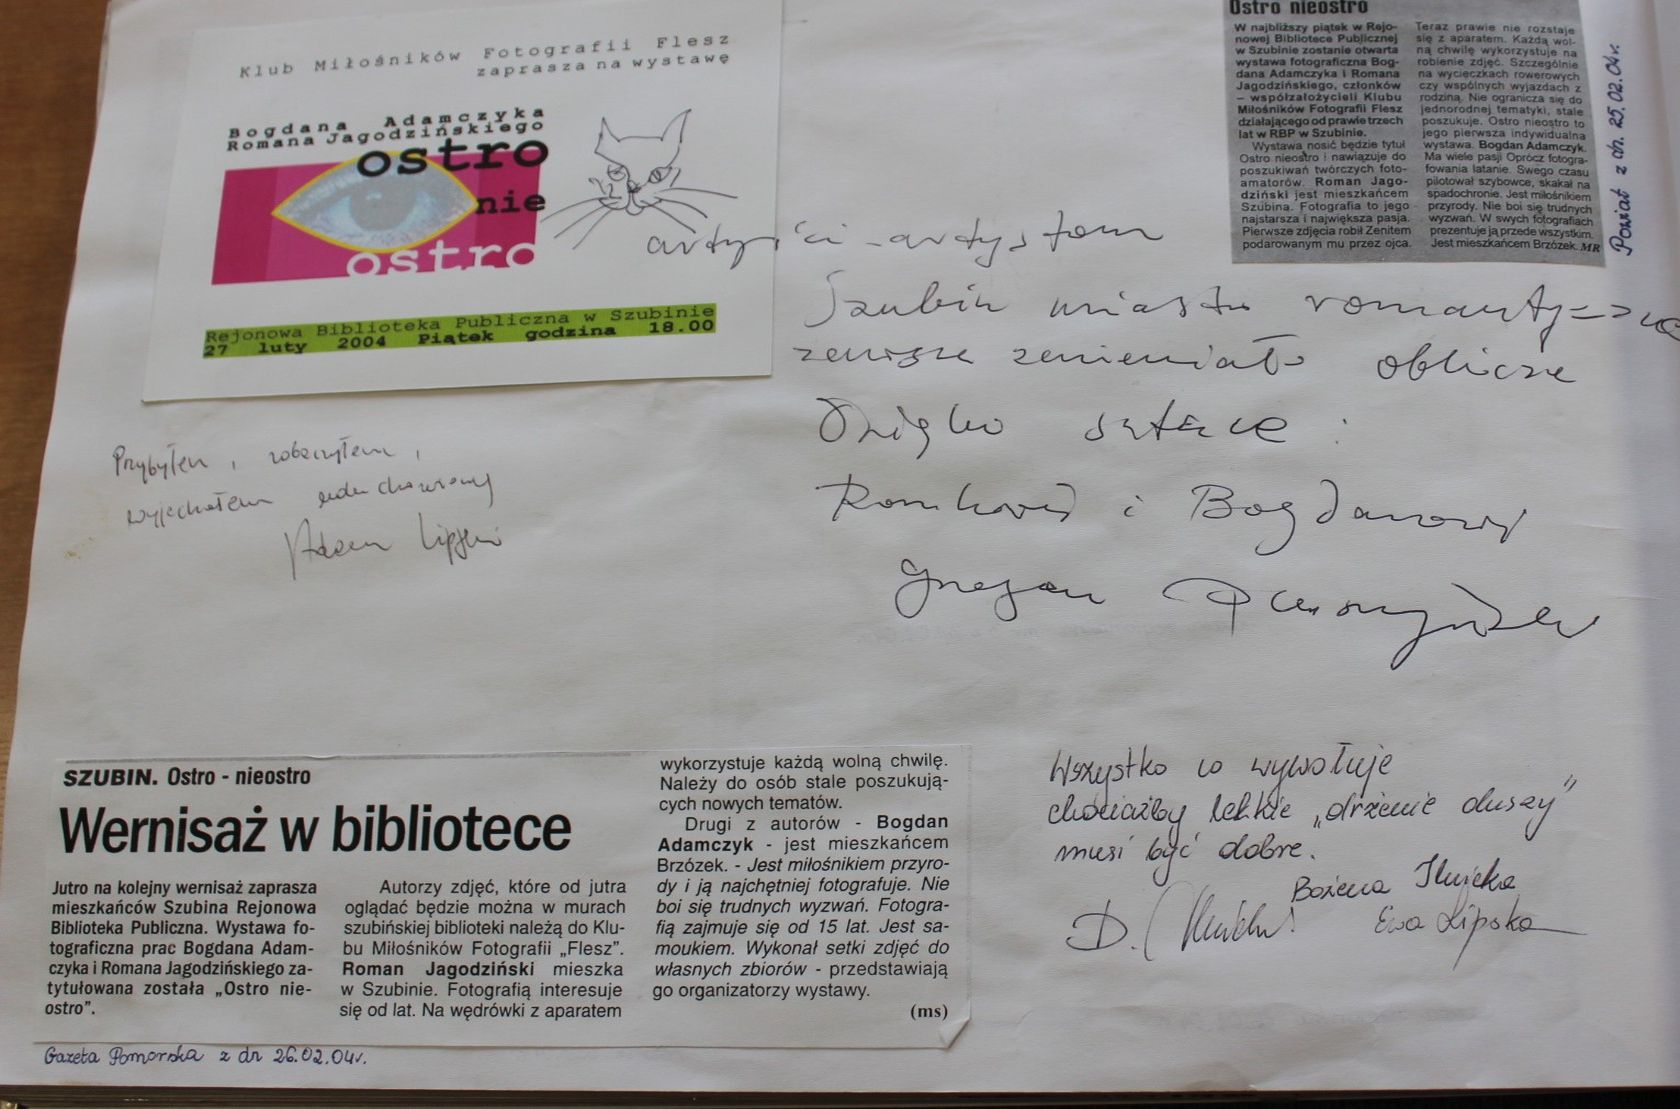 Klub Miłośników Fotografii Flesz
zaprasza na wystawę
Bogdana Adamczyka
Romana Jagodzińskiego
ostro
nie
ostro
Rejonowa Biblioteka Publiczna w Szubinie
27 luty 2004 Piątek godzina 18.00
Ostro nieostro
W najbliższy piątek w Rejo-
nowej Bibliotece Publicznej
w Szubinie zostanie otwarta
wystawa fotograficzna Bog-
dana Adamczyka i Romana
Jagodzińskiego, członków
– współzałożycieli Klubu
Miłośników Fotografii Flesz
działającego od prawie trzech
lat w RBP w Szubinie.
Wystawa nosić będzie tytuł
Ostro nieostro i nawiązuje do
poszukiwań twórczych foto-
amatorów. Roman Jago-
dziński jest mieszkańcem
Szubina. Fotografia to jego
najstarsza i największa pasja.
Pierwsze zdjęcia robił Zenitem
podarowanym mu przez ojca.
Teraz prawie nie rozstaje
się z aparatem. Każdą wol-
ną chwilę wykorzystuje na
robienie zdjęć. Szczególnie
na wycieczkach rowerowych
czy wspólnych wyjazdach z
rodziną. Nie ogranicza się do
jednorodnej tematyki, stale
poszukuje. Ostro nieostro to
jego pierwsza indywidualna
wystawa. Bogdan Adamczyk.
Ma wiele pasji Oprócz fotogra-
fowania latanie. Swego czasu
pilotował szybowce, skakał na
spadochronie. Jest miłośnikiem
przyrody. Nie boi się trudnych
wyzwań. W swych fotografiach
prezentuje ją przede wszystkim.
Jest mieszkańcem Brzózek. MR
Powiat z dn. 25.02.04r.
artyści - artystom
Szubin miasto
zawsze zmieniało oblicze
Dzięki sztuce :
Romkowi i Bogdanowi
Przybyłem, zobaczyłem,
wyjechałem uduchowiony
Adam Lipski
SZUBIN. Ostro - nieostro
Wernisaż w bibliotece
Jutro na kolejny wernisaż zaprasza
mieszkańców Szubina Rejonowa
Biblioteka Publiczna. Wystawa fo-
tograficzna prac Bogdana Adam-
czyka i Romana Jagodzińskiego za-
tytułowana została „Ostro nie-
ostro”.
Autorzy zdjęć, które od jutra
oglądać będzie można w murach
szubińskiej biblioteki należą do Klu-
bu Miłośników Fotografii „Flesz”.
Roman Jagodziński mieszka
w Szubinie. Fotografią interesuje
się od lat. Na wędrówki z aparatem
wykorzystuje każdą wolną chwilę.
Należy do osób stale poszukują-
cych nowych tematów.
Drugi z autorów - Bogdan
Adamczyk - jest mieszkańcem
Brzózek. - Jest miłośnikiem przyro-
dy i ją najchętniej fotografuje. Nie
boi się trudnych wyzwań. Fotogra-
fią zajmuje się od 15 lat. Jest sa-
moukiem. Wykonał setki zdjęć do
własnych zbiorów - przedstawiają
go organizatorzy wystawy.
(ms)
Gazeta Pomorska z dn 26.02.04r.
Wszystko co wywołuje
chociażby lekkie „drżenie duszy”
musi być dobre.
Bożena
D.
Ewa Lipska